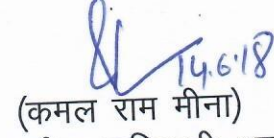 14.6.18
(कमल राम मीना)